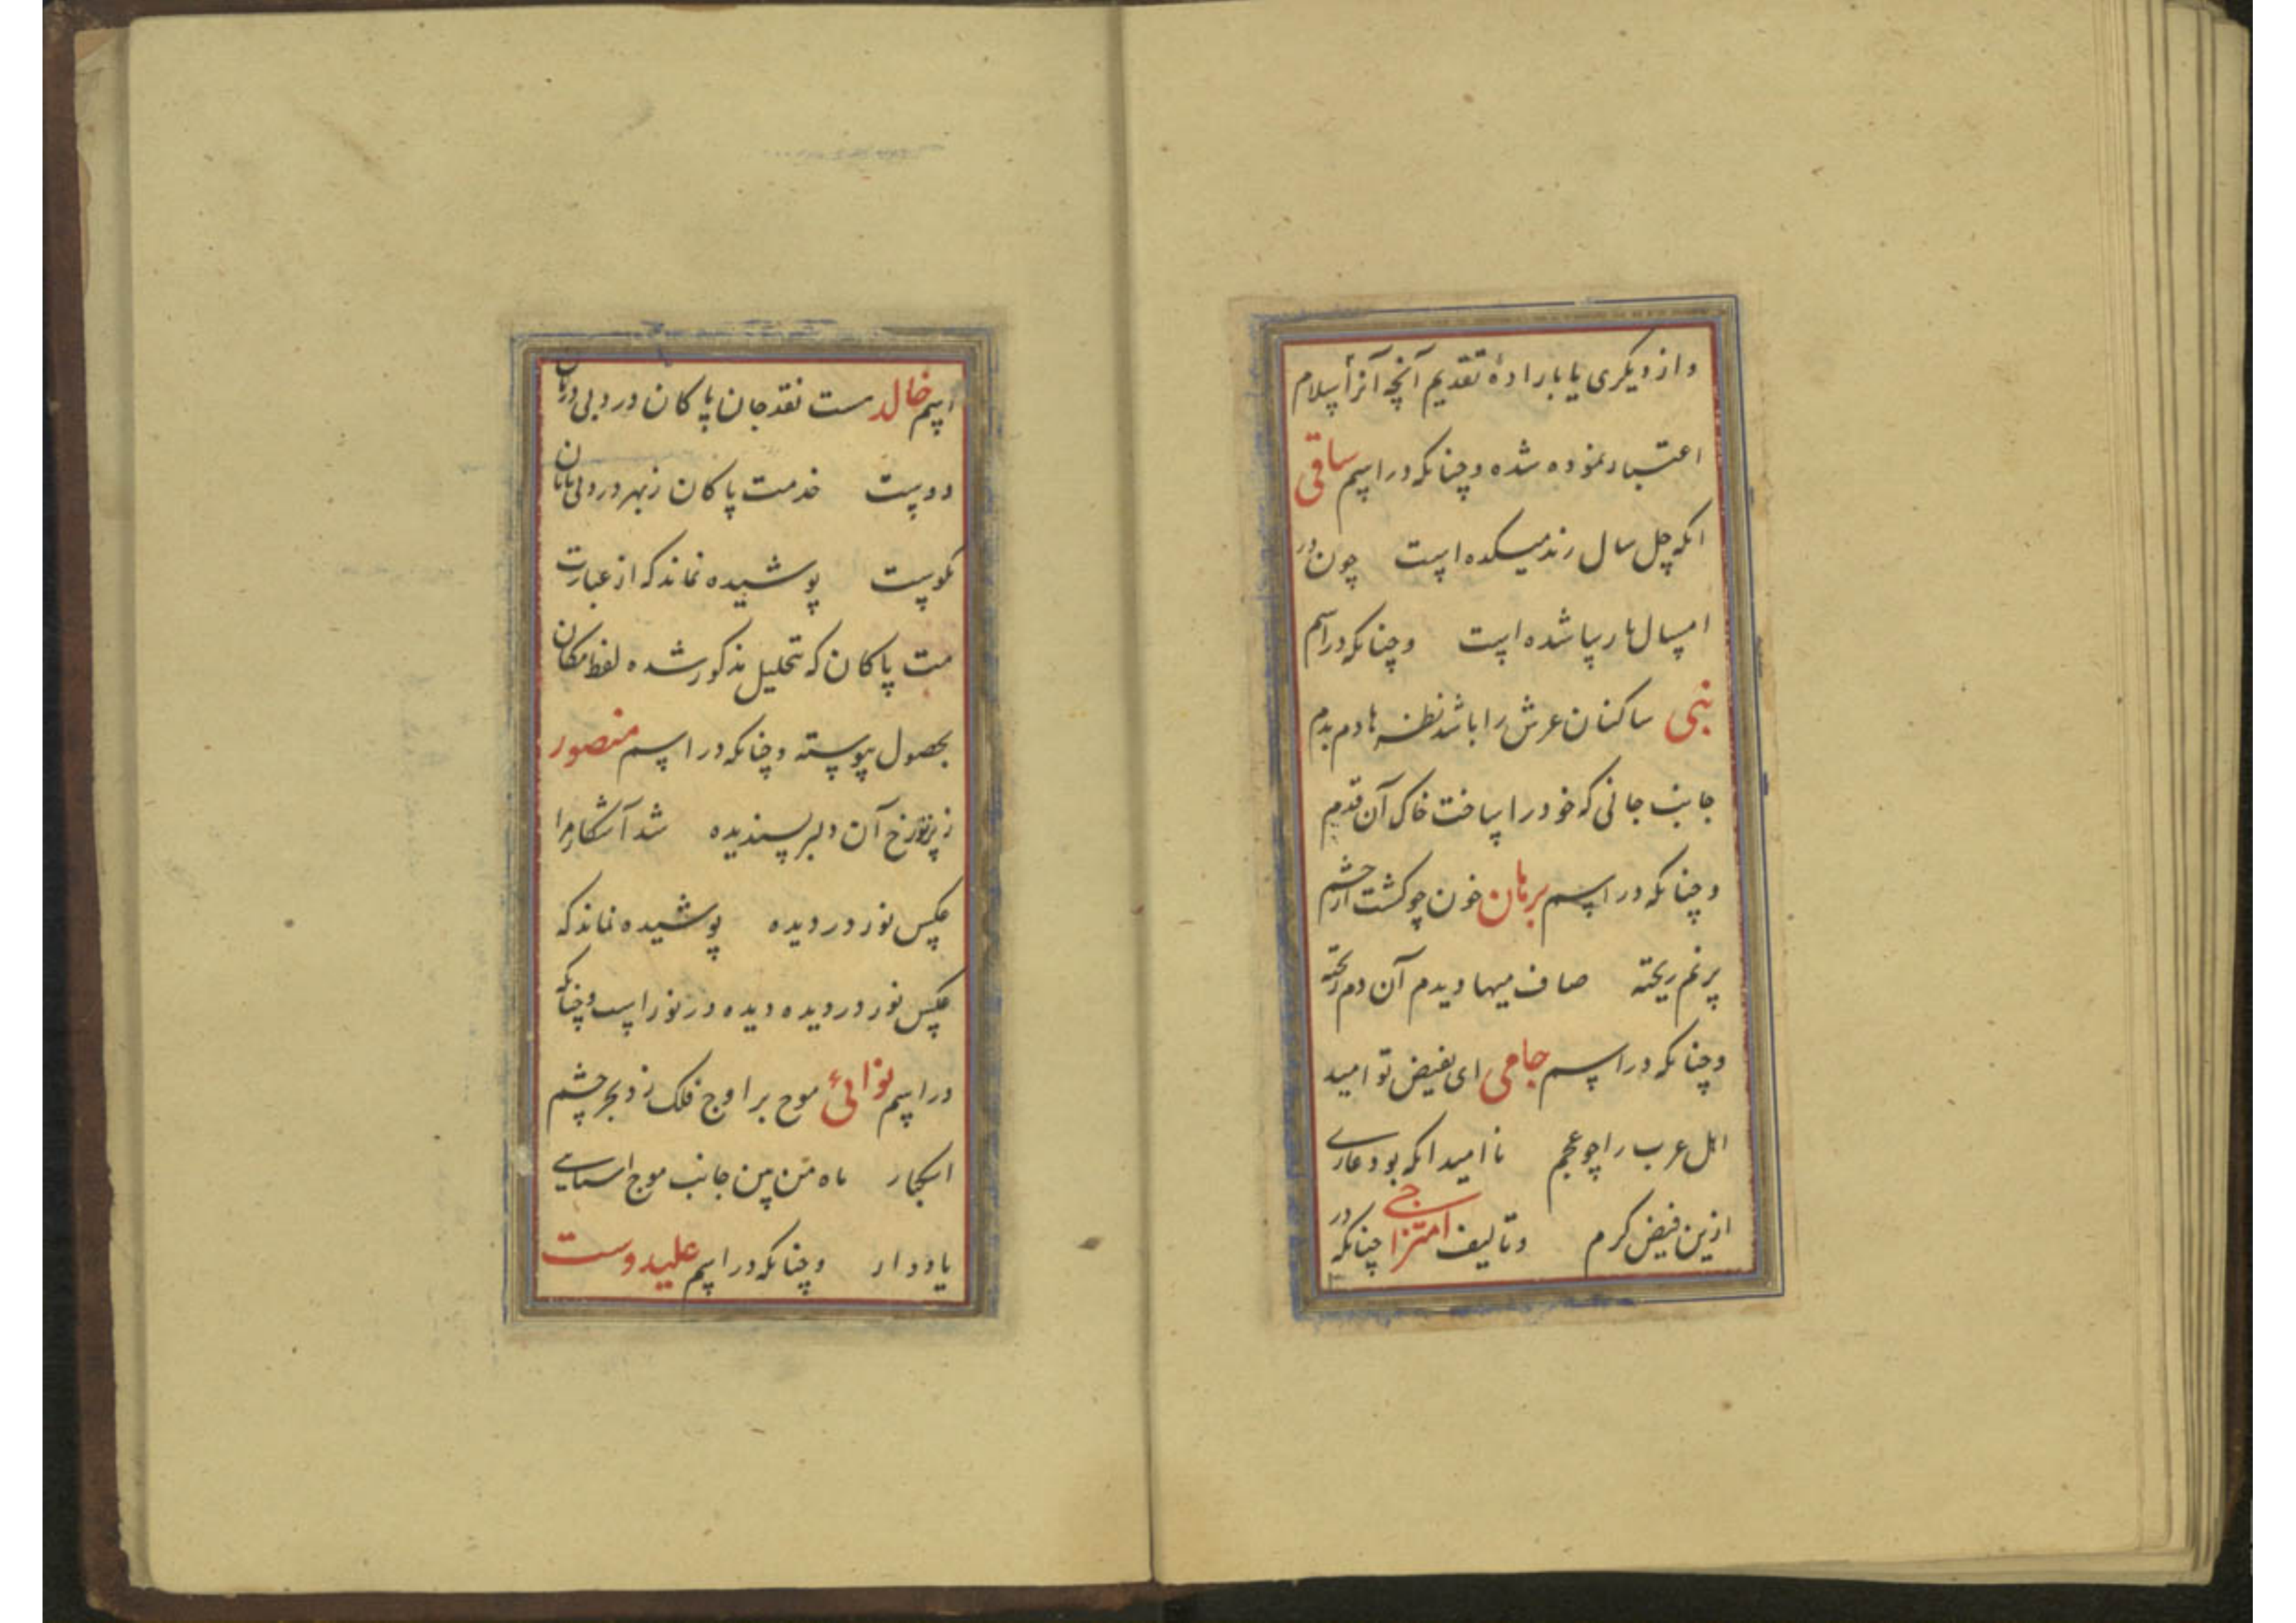 و از دیگری یا باراده تقدیم آنچه آنرا اسلام
اعتبار نموده شده و چنانکه در اسم ساقی
آنکه چل سال رند میکده است چون در
امسال پارسا شده است و چنانکه در اسم
نبی ساکنان عرش را باشد نظرها دم بدم
جانب جانی که خود را ساخت خاک آن قدم
و چنانکه در اسم برهان خون چو گشت از چشم
پر نم ریخته صاف میها دیدم آن دم ریخته
و چنانکه در اسم جامی ای بفیض تو امید
اهل عرب را چو عجم ناامید آنکه بود عاری
ازین فیض کرم و تالیف امتزاجی چنانکه در
اسم خالد مست نقد جان پاکان در دبی درمان
دوست خدمت پاکان ز بهر درد بی
نکوست پوشیده نماند که از عبارت
مت پاکان که بتحلیل مذکور شده لفظ مکان
بحصول پیوسته و چنانکه در اسم منصور
ز پرتو رخ آن دلبر پسندیده شد آشکار مرا
عکس نور در دیده پوشیده نماند که
عکس نور در دیده دیده در نور است و چنانکه
در اسم نوائی موج بر اوج فلک زد بحر چشم
اشکبار ماه من بین جانب موج اساسی
یاد دار و چنانکه در اسم علیدوست